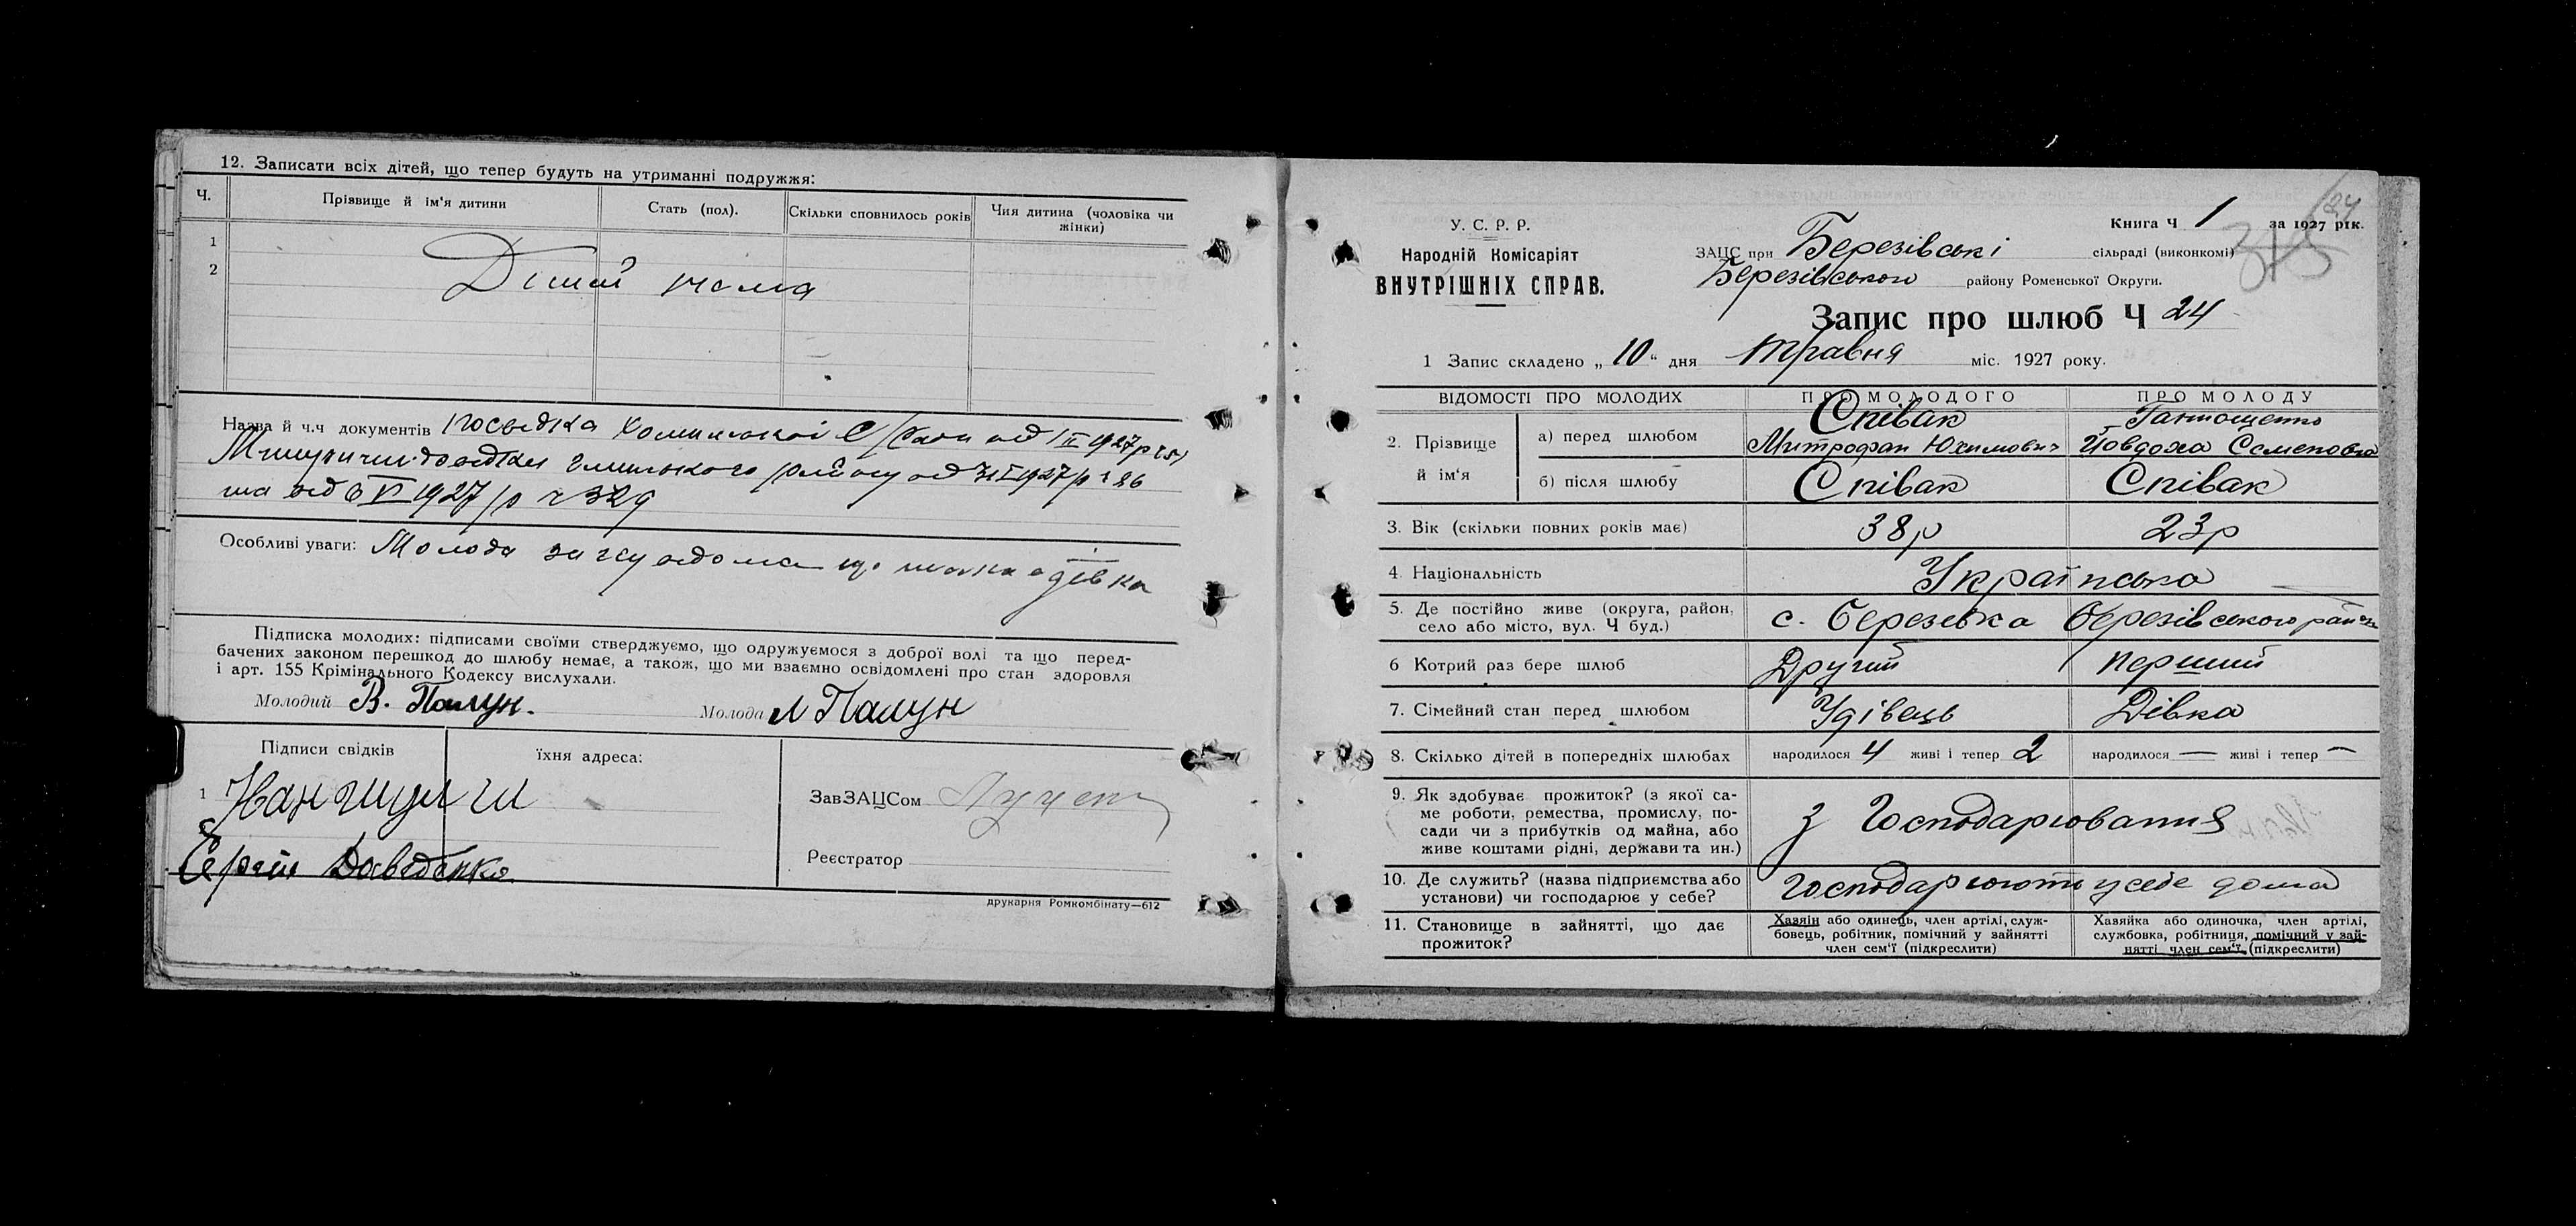 12. Записати всіх дітей, що тепер будуть на утриманні подружжя:
Ч. Прізвище й ім'я дитини Стать (пол). Скільки сповнилось років Чия дитина (чоловіка чи жінки)
1
2
Дітей нема
Назва й ч.ч документів
1927р
району од 1927р
та од 1927р ч 329
Особливі уваги: Молода що дівка
Підписка молодих: підписами своїми стверджуємо, що одружуємося з доброї волі та що перед-
бачених законом перешкод до шлюбу немає, а також, що ми взаємно освідомлені про стан здоровля
і арт. 155 Крімінального Кодексу вислухали.
Молодий В. Молода Л
Підписи свідків їхня адреса:
1
ЗавЗАЦСом
Реєстратор
друкарня Ромкомбінату—612
У. С. Р. Р.
Народній Комісаріят
ВНУТРІШНІХ СПРАВ.
Книга Ч 1 за 1927 рік.
ЗАЦС при Березівські сільраді (виконкомі)
Березівського району Роменської Округи.
Запис про шлюб Ч 24
1 Запис складено „ 10 “ дня травня міс. 1927 року.
ВІДОМОСТІ ПРО МОЛОДИХ ПРО МОЛОДОГО ПРО МОЛОДУ
2. Прізвище й ім'я
а) перед шлюбом Співак Митрофан Юхимович Йовдоха Семеновна
б) після шлюбу Співак Співак
3. Вік (скільки повних років має) 38р 23р
4. Національність Українська
5. Де постійно живе (округа, район,
село або місто, вул. Ч буд.) с. Березівка Березівського району
6 Котрий раз бере шлюб Другий перший
7. Сімейний стан перед шлюбом Удівець Дівка
8. Скілько дітей в попередніх шлюбах народилося 4 живі і тепер 2 народилося — живі і тепер —
9. Як здобуває прожиток? (з якої са-
ме роботи, ремества, промислу, по-
сади чи з прибутків од майна, або
живе коштами рідні, держави та ин.)
з Господарювання
10. Де служить? (назва підприємства або
установи) чи господарює у себе?
Господарюють у себе дома
11. Становище в зайнятті, що дає
прожиток?
Хазяїн або одинець, член артілі, служ-
бовець, робітник, помічний у зайнятті
член сем'ї (підкреслити)
Хазяйка або одиночка, член артілі,
службовка, робітниця, помічний у зай-
нятті член сем'ї (підкреслити)